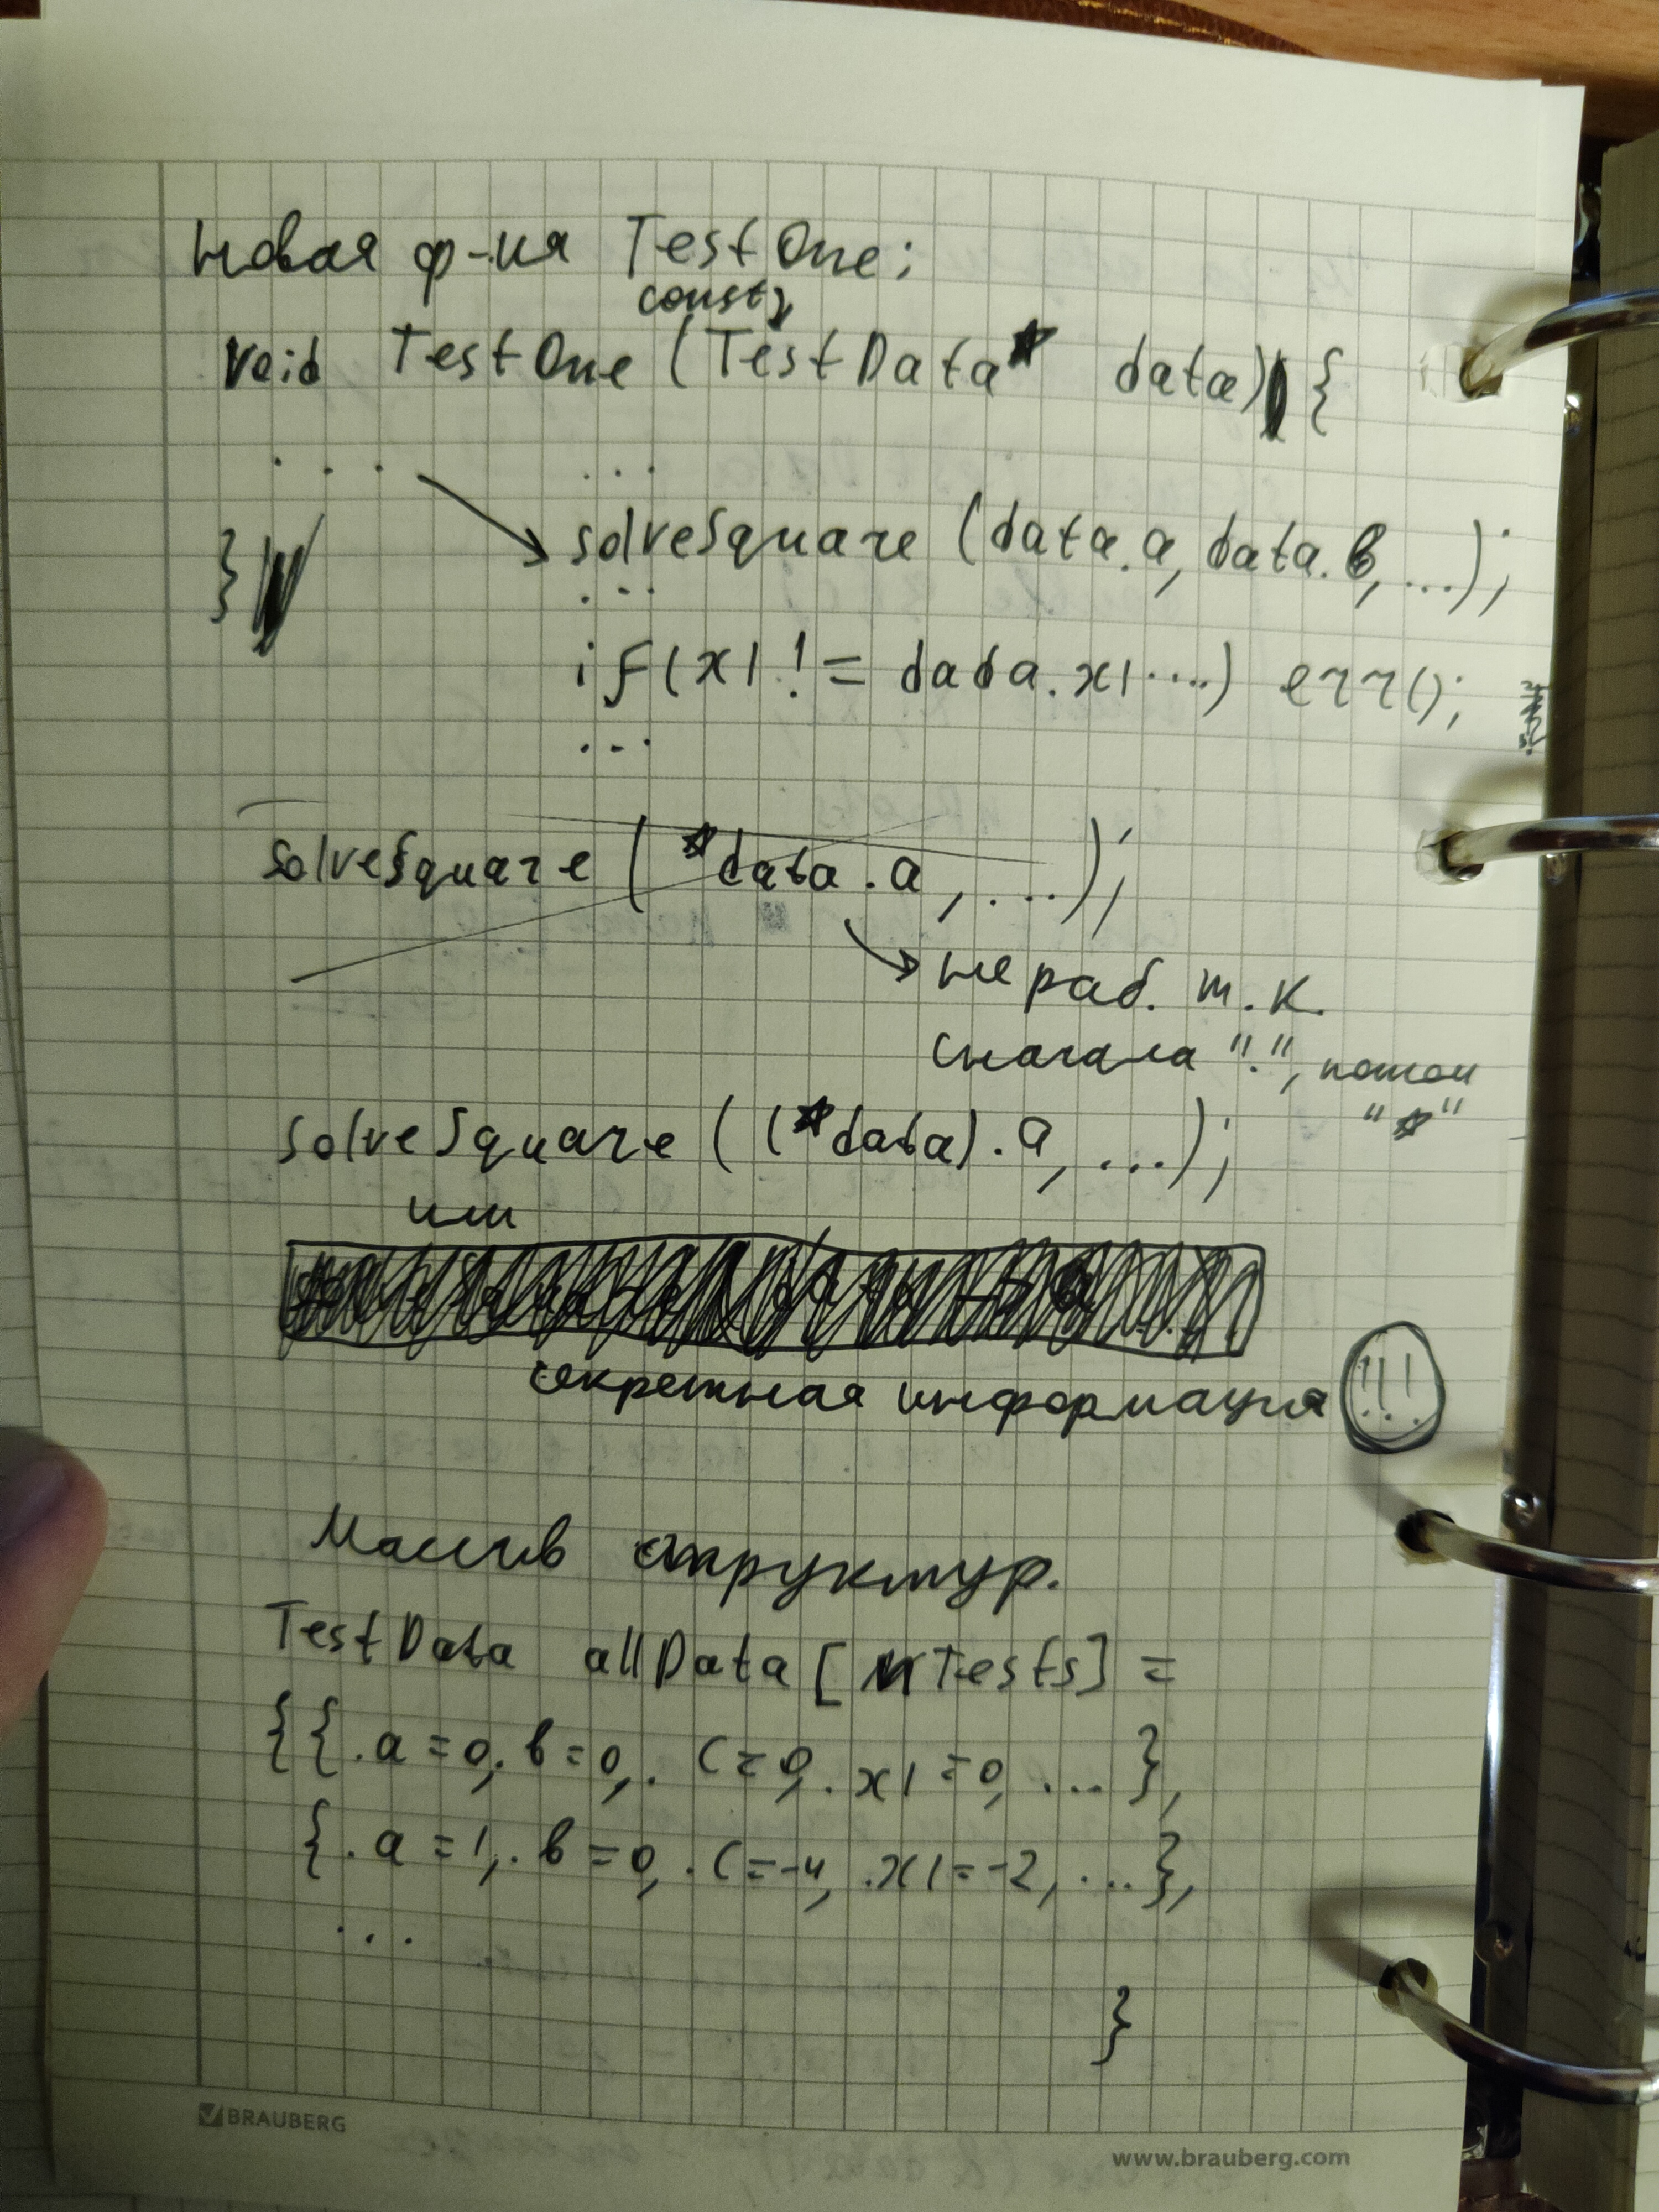 Новая ф-ия TestOne:
const
void TestOne (TestData* data) {
... ...
solveSquare (data.a, data.b, ...);
} ...
if(x1 != data.x1 ....) err();
...
solveSquare (*data.a, ...);
не раб. т.к.
сначала ".", потом
"*"
solveSquare ((*data).a, ...);
или
секретная информация !!!
Массив структур.
TestData allData [nTests] =
{{.a=0,.b=0,.c=0,.x1=0, ...},
{.a=1,.b=0,.c=-4,.x1=-2, ...},
...
}
BRAUBERG
www.brauberg.com